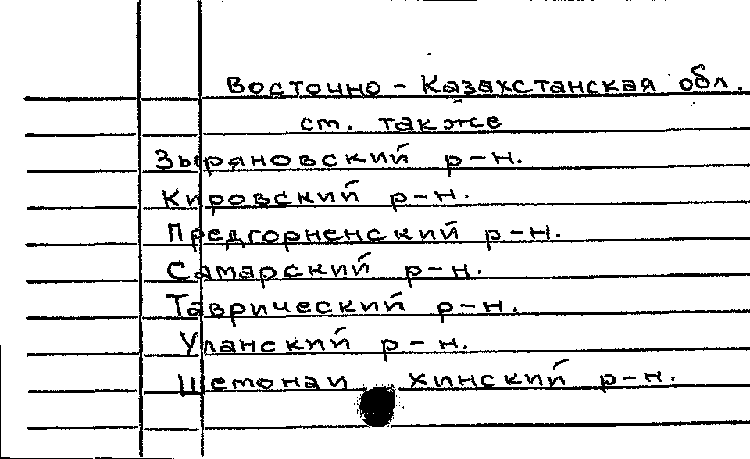 Восточно - Казахстанская обл.
ст. также
Зыряновский р-н.
Кировский р-н.
Предгорненский р-н.
Самарский р-н.
Таврический р-н.
Уланский р-н.
Шемонаи хинский р-н.